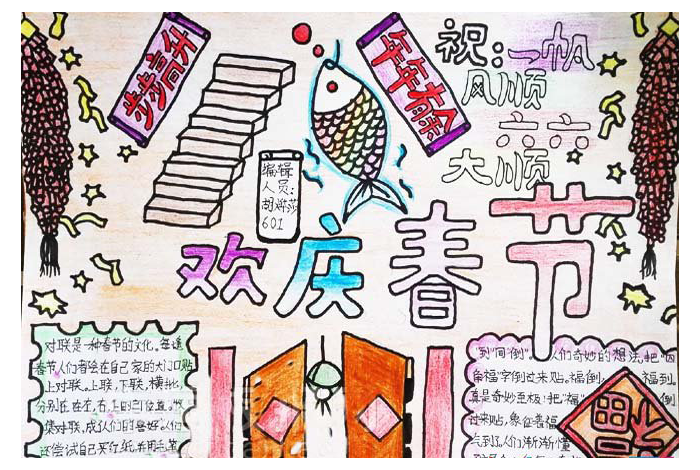 步步高升
年年有余
祝:一帆
风顺
六六
大顺
编辑
人员:
胡 莎
601
欢庆春节
对联是一种春节的文化,每逢
春节人们都会在自己家的大门口贴
上对联。上联,下联,横批,
分别在左,右,上的三个位置。
集对联,成人们的喜好。人们
还尝试自己买红纸,
“到”同“倒”,人们奇妙的想法,把
福字倒过来贴。福倒,福到。
真是奇妙至极!把“福” 倒
过来贴,象征着福
气到了。人们渐渐懂
福